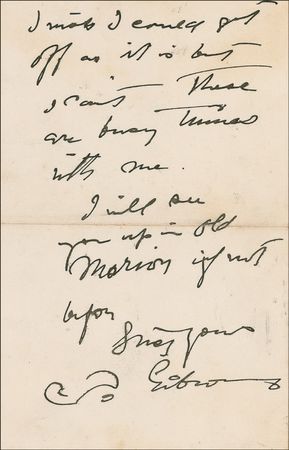 I wish I could get
off as it is but
I can't These
are busy times
with me.
I will see
you up in old
Marion if not
before
Yours
C D Gibson